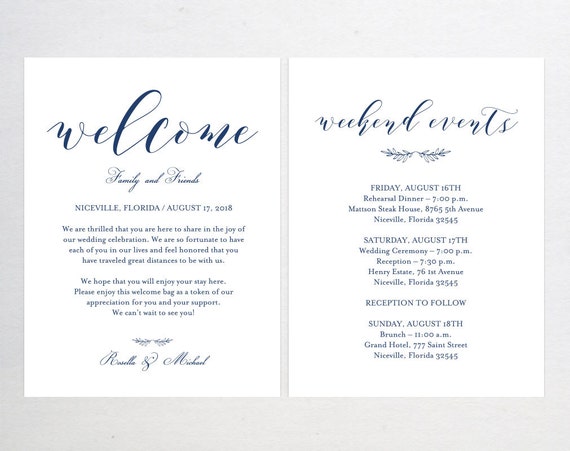 welcome
Family and Friends
NICEVILLE, FLORIDA / AUGUST 17, 2018
We are thrilled that you are here to share in the joy of
our wedding celebration. We are so fortunate to have
each of you in our lives and feel honored that you
have traveled great distances to be with us.
We hope that you will enjoy your stay here.
Please enjoy this welcome bag as a token of our
appreciation for you and your support.
We can't wait to see you!
Rosella & Michael
weekend events
FRIDAY, AUGUST 16TH
Rehearsal Dinner – 7:00 p.m.
Mattson Steak House, 8765 5th Avenue
Niceville, Florida 32545
SATURDAY, AUGUST 17TH
Wedding Ceremony – 7:00 p.m.
Reception – 7:30 p.m.
Henry Estate, 76 1st Avenue
Niceville, Florida 32545
RECEPTION TO FOLLOW
SUNDAY, AUGUST 18TH
Brunch – 11:00 a.m.
Grand Hotel, 777 Saint Street
Niceville, Florida 32545